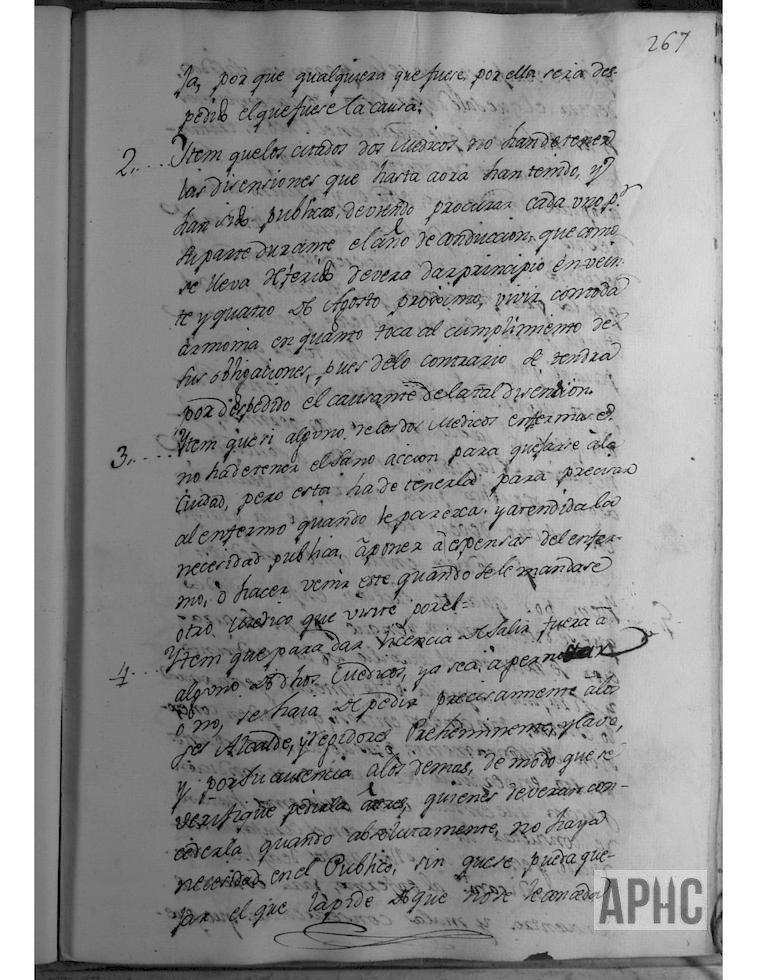 267
Ja, por que qualquiera que fuese, por ella sera des-
pedido el que fuese la causa:
2.,.... Ytem que los citados dos Medicos no han de tener
las disensiones que hasta aora han tenido, y
han sido publicas, deviendo procurar cada uno pr
su parte durante el año de conduccion, que como
se lleva referido devera dar principio en vein-
te y quatro de Agosto proximo, vivir, con toda
armonia en quanto toca al cumplimiento de
sus obligaciones, pues delo contrario se tendra
por despedido el causante de la tal disension.
3.,.... Ytem que si alguno de los dos Medicos enfermase
no ha de tener el sano accion para quejarse a la
Ciudad, pero esta ha de tenerla para precisar
al enfermo quando le parezca, y atendida la
necesidad publica, à poner à espensas del enfer-
mo, ò hacer venir este quando se le mandase
otro Medico que visite por el=
4... Ytem que para dar licencia de salir fuera à
alguno de dhos Medicos, ya sea à pernoctar
ò no, se hara de pedir precisamente a los
ses Alcalde, y regidores Preheminente, y
y por su ausencia à los demas, de modo que se
verifique pedirla quienes deveran con-
cederla quando absolutamente, no haya
necesidad en el Publico, sin que se pueda que-
jar el que la pide de que no se le conceda
APHC